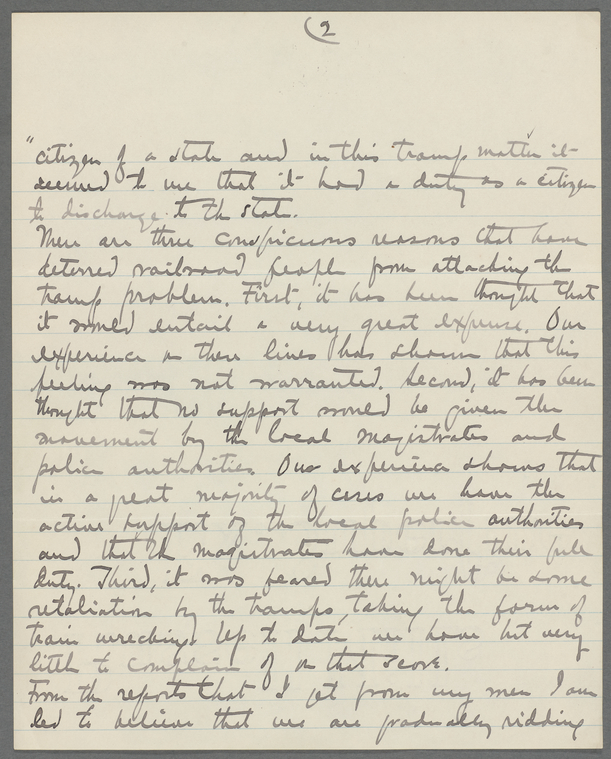 2
"citizen of a state and in this tramp matter it
seemed to me that it had a duty as a citizen
to discharge to the state.
There are three conspicuous reasons that have
deterred railroad people from attacking the
tramp problem. First, it has been thought that
it would entail a very great expense. Our
experience on these lines has shown that this
feeling was not warranted. Second, it has been
thought that no support would be given the
movement by the local magistrates and
police authorities. Our experience shows that
in a great majority of cases we have the
active support of the local police authorities
and that the magistrates have done their full
duty. Third, it was feared there might be some
retaliation by the tramps, taking the form of
train wrecking. Up to date we have but very
little to complain of on that score.
From the reports that I get from my men I am
led to believe that we are gradually ridding